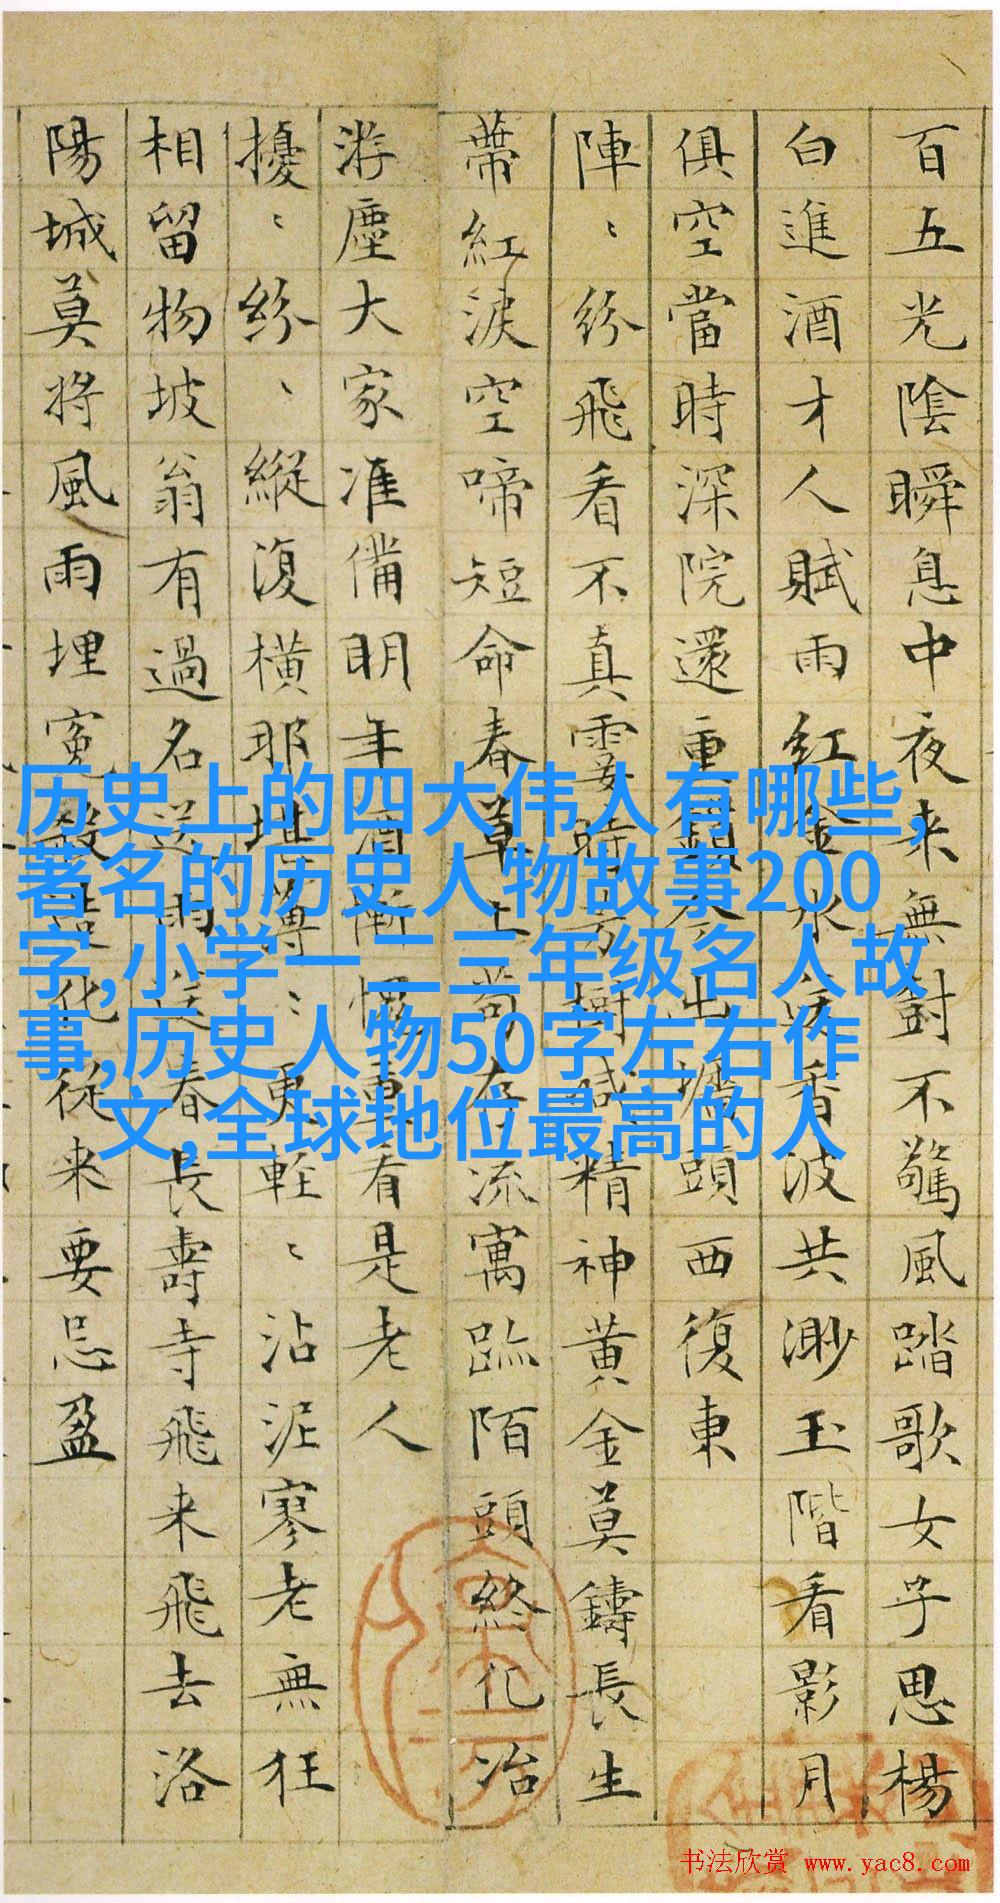 百五光陰瞬息中夜来無對不驚風踏歌女子思楊
白進酒才人賦雨紅金水 香波共渺玉階看影月
俱空當時深院還重鎖 出墻頭西復東
陣〻紛飛看不真霎時 樹減精神黄金莫鑄長生
蔕紅淚空啼短命春草土苟存流寓跡陌頭終化冶
游塵大家准備明年酒慚愧重看是老人
擾〻紛〻縱復横那堪薄〻更輕〻沾泥寥老無狂
相留物坡翁有過名送雨送春長壽寺飛来飛去洛
陽城莫將風雨埋寃殺造化從来要忌盈
历史上的四大伟人有哪些,
著名的历史人物故事200
字,小学一二三年级名人故
事,历史人物50字左右作
文,全球地位最高的人
书法欣赏 www.yac8.com